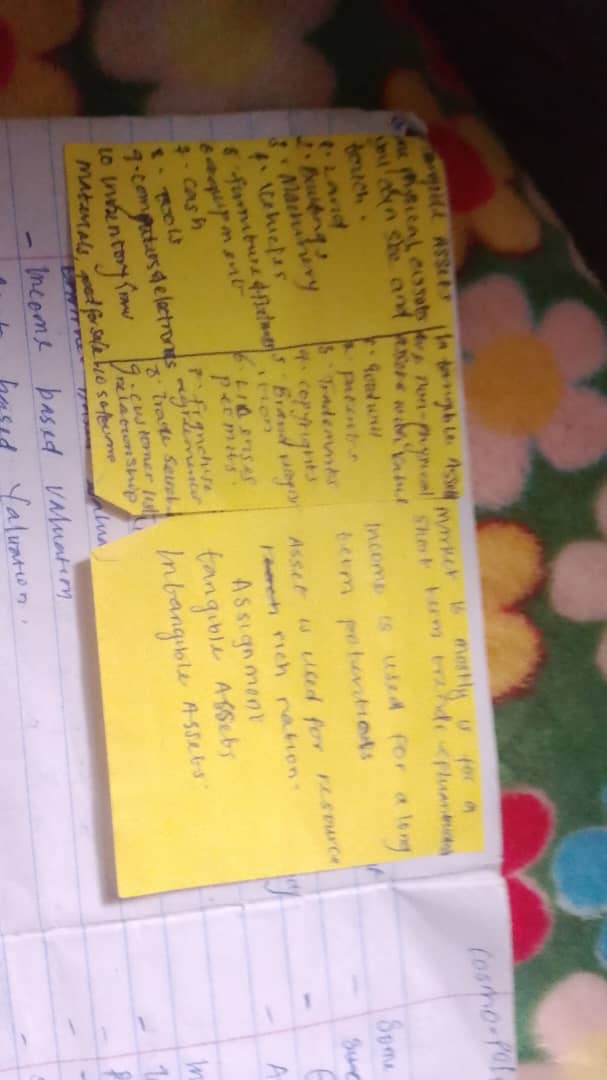 Tangible Assets
physical assets
you can see and
touch.
1. Land
2. Buildings
3. Machinery
4. Vehicles
5. furniture &
6. equipment
7. cash
8. Tools
9. computers & electronics
10 inventory (raw
materials, good for sale
Intangible Asset
non-physical
assets with value
1. goodwill
2. patents
3. Trademarks
4. copyrights
5. Brand
6. Licenses
permits.
7. Franchise
agreements
8. Trade secret
9. customer list
relationship
10 software
market is mostly is for a
short term trends
Income is used for a long
term potentials
Asset is used for resource
rich nation.
Assignment
tangible Assets
Intangible Assets.
- Income based valuation
based Valuation.
Cosmo-Pol
- Some